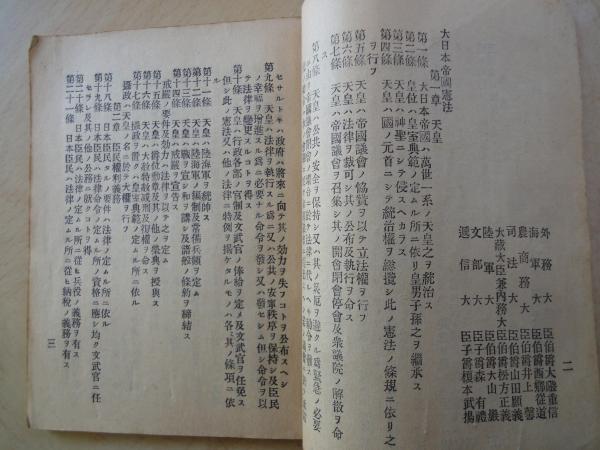 二
外務大臣伯爵大隈重信
海軍大臣伯爵西鄕從道
農商務大臣伯爵井上馨
司法大臣伯爵山田顯義
大藏大臣兼內務大臣伯爵松方正義
陸軍大臣伯爵大山巖
文部大臣子爵森有禮
遞信大臣子爵榎本武揚
大日本帝國憲法
第一章 天皇
第一條 大日本帝國ハ萬世一系ノ天皇之ヲ統治ス
第二條 皇位ハ皇室典範ノ定ムル所ニ依リ皇男子孫之ヲ繼承ス
第三條 天皇ハ神聖ニシテ侵スヘカラス
第四條 天皇ハ國ノ元首ニシテ統治權ヲ總攬シ此ノ憲法ノ條規ニ依リ之
ヲ行フ
第五條 天皇ハ帝國議會ノ協贊ヲ以テ立法權ヲ行フ
第六條 天皇ハ法律ヲ裁可シ其ノ公布及執行ヲ命ス
第七條 天皇ハ帝國議會ヲ召集シ其ノ開會閉會停會及衆議院ノ解散ヲ命
ス
第八條 天皇ハ公共ノ安全ヲ保持シ又ハ其ノ災厄ヲ避クル爲緊急ノ必要
セサルトキハ政府ハ將來ニ向テ其ノ効力ヲ失フコトヲ公布スヘシ
第九條 天皇ハ法律ヲ執行スル爲ニ又ハ公共ノ安寧秩序ヲ保持シ及臣民
ノ幸福ヲ增進スル爲ニ必要ナル命令ヲ發シ又ハ發セシム但シ命令ヲ以
テ法律ヲ變更スルコトヲ得ス
第十條 天皇ハ行政各部ノ官制及文武官ノ俸給ヲ定メ及文武官ヲ任免ス
但シ此ノ憲法又ハ他ノ法律ニ特例ヲ揭ケタルモノハ各〻其ノ條項ニ依
ル
第十一條 天皇ハ陸海軍ヲ統帥ス
第十二條 天皇ハ陸海軍ノ編制及常備兵額ヲ定ム
第十三條 天皇ハ戰ヲ宣シ和ヲ講シ及諸般ノ條約ヲ締結ス
第十四條 天皇ハ戒嚴ヲ宣告ス
戒嚴ノ要件及効力ハ法律ヲ以テ之ヲ定ム
第十五條 天皇ハ爵位勳章及其ノ他ノ榮典ヲ授與ス
第十六條 天皇ハ大赦特赦減刑及復權ヲ命ス
第十七條 攝政ヲ置クハ皇室典範ノ定ムル所ニ依ル
攝政ハ天皇ノ名ニ於テ大權ヲ行フ
第二章 臣民權利義務
第十八條 日本臣民タル要件ハ法律ノ定ムル所ニ依ル
第十九條 日本臣民ハ法律命令ノ定ムル所ノ資格ニ應シ均ク文武官ニ任
セラレ及其ノ他ノ公務ニ就クコトヲ得
第二十條 日本臣民ハ法律ノ定ムル所ニ從ヒ兵役ノ義務ヲ有ス
第二十一條 日本臣民ハ法律ノ定ムル所ニ從ヒ納稅ノ義務ヲ有ス
三